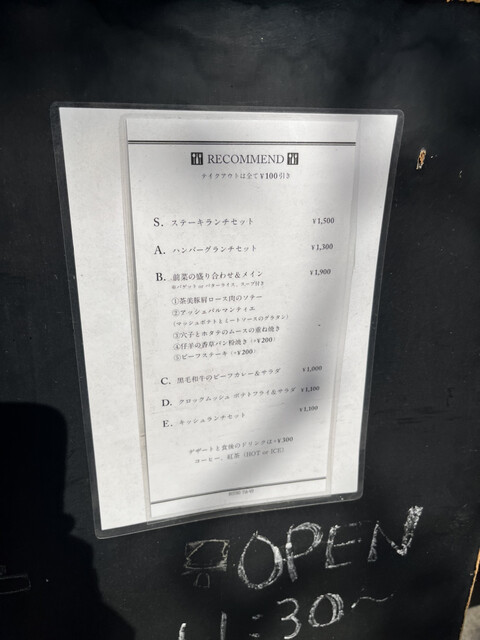 RECOMMEND
テイクアウトは全て¥100引き
S. ステーキランチセット ¥1,500
A. ハンバーグランチセット ¥1,300
B. 前菜の盛り合わせ&メイン ¥1,900
※バゲット or バターライス、スープ付き
①茶美豚肩ロース肉のソテー
②アッシェパルマンティエ
(マッシュポテトとミートソースのグラタン)
③穴子とホタテのムースの重ね焼き
④仔羊の香草パン粉焼き(+¥200)
⑤ビーフステーキ(+¥200)
C. 黒毛和牛のビーフカレー&サラダ ¥1,000
D. クロックムッシュ ポテトフライ&サラダ ¥1,100
E. キッシュランチセット ¥1,100
デザートと食後のドリンクは+¥300
コーヒー、紅茶(HOT or ICE)
OPEN
11:30~